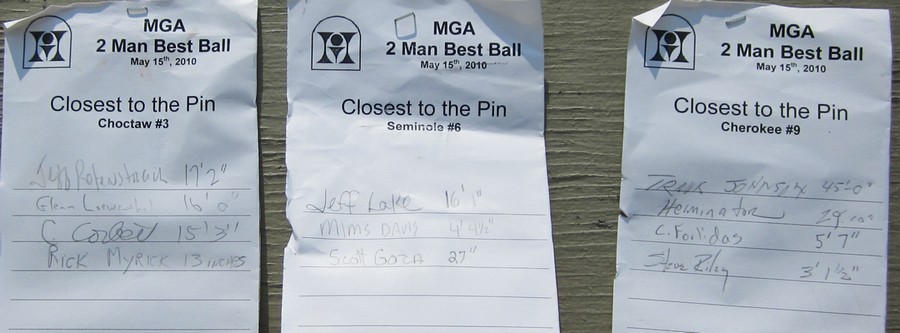 MGA
2 Man Best Ball
May 15th, 2010
Closest to the Pin
Choctaw #3
Jeff 17' 2"
Glenn 16' 0"
C Corbell 15' 3"
RICK MYRICK 13 INCHES
MGA
2 Man Best Ball
May 15th, 2010
Closest to the Pin
Seminole #6
Jeff Lake 16' 1"
MIMS DAVIS 4' 4½"
Scott GOZA 27"
MGA
2 Man Best Ball
May 15th, 2010
Closest to the Pin
Cherokee #9
45' 0"
Herminator 29
C. Foilidas 5' 7"
Steve Riley 3' 1½"